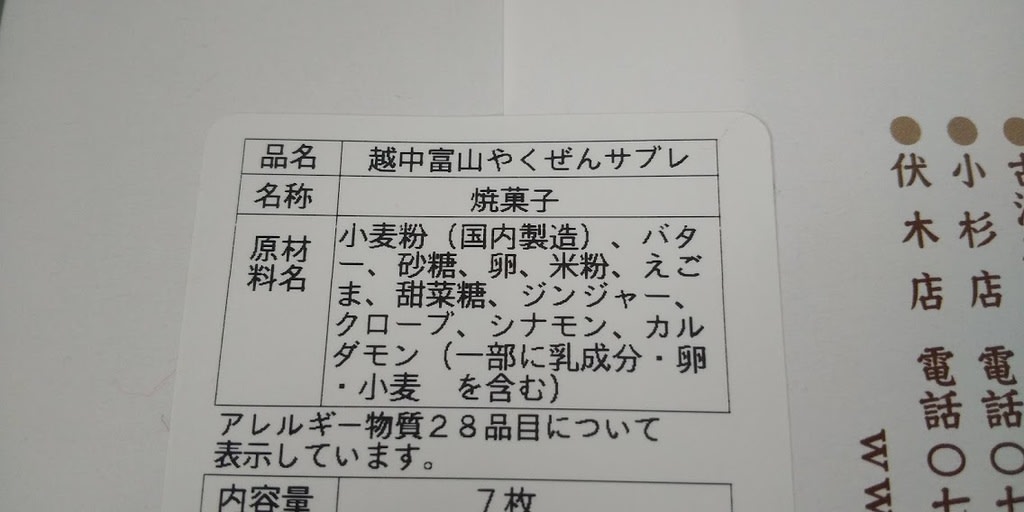 品名 越中富山やくぜんサブレ
名称 焼菓子
原材料名 小麦粉（国内製造）、バタ
ー、砂糖、卵、米粉、えご
ま、甜菜糖、ジンジャー、
クローブ、シナモン、カル
ダモン（一部に乳成分・卵
・小麦　を含む）
アレルギー物質２８品目について
表示しています。
内容量 ７枚
小杉店 電話〇七
伏木店 電話〇七
ww